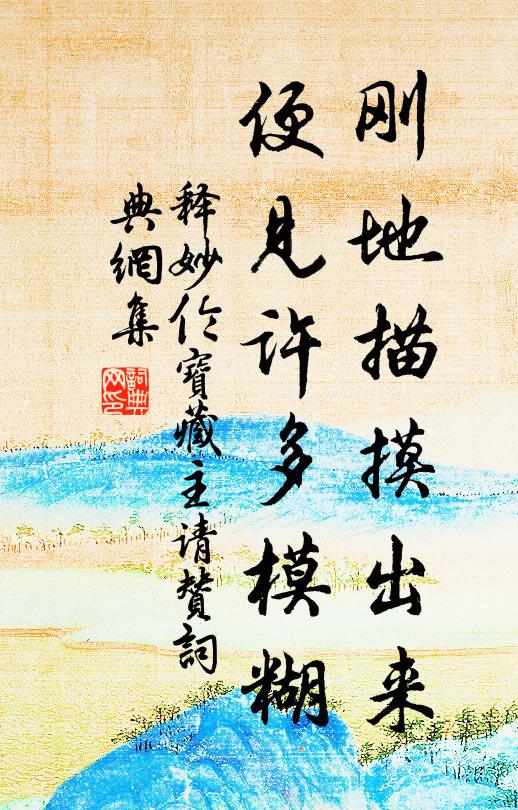 刚地描摸出来
便见许多模糊
释妙伦寳藏主请赞詞
典網集
詞典
网印